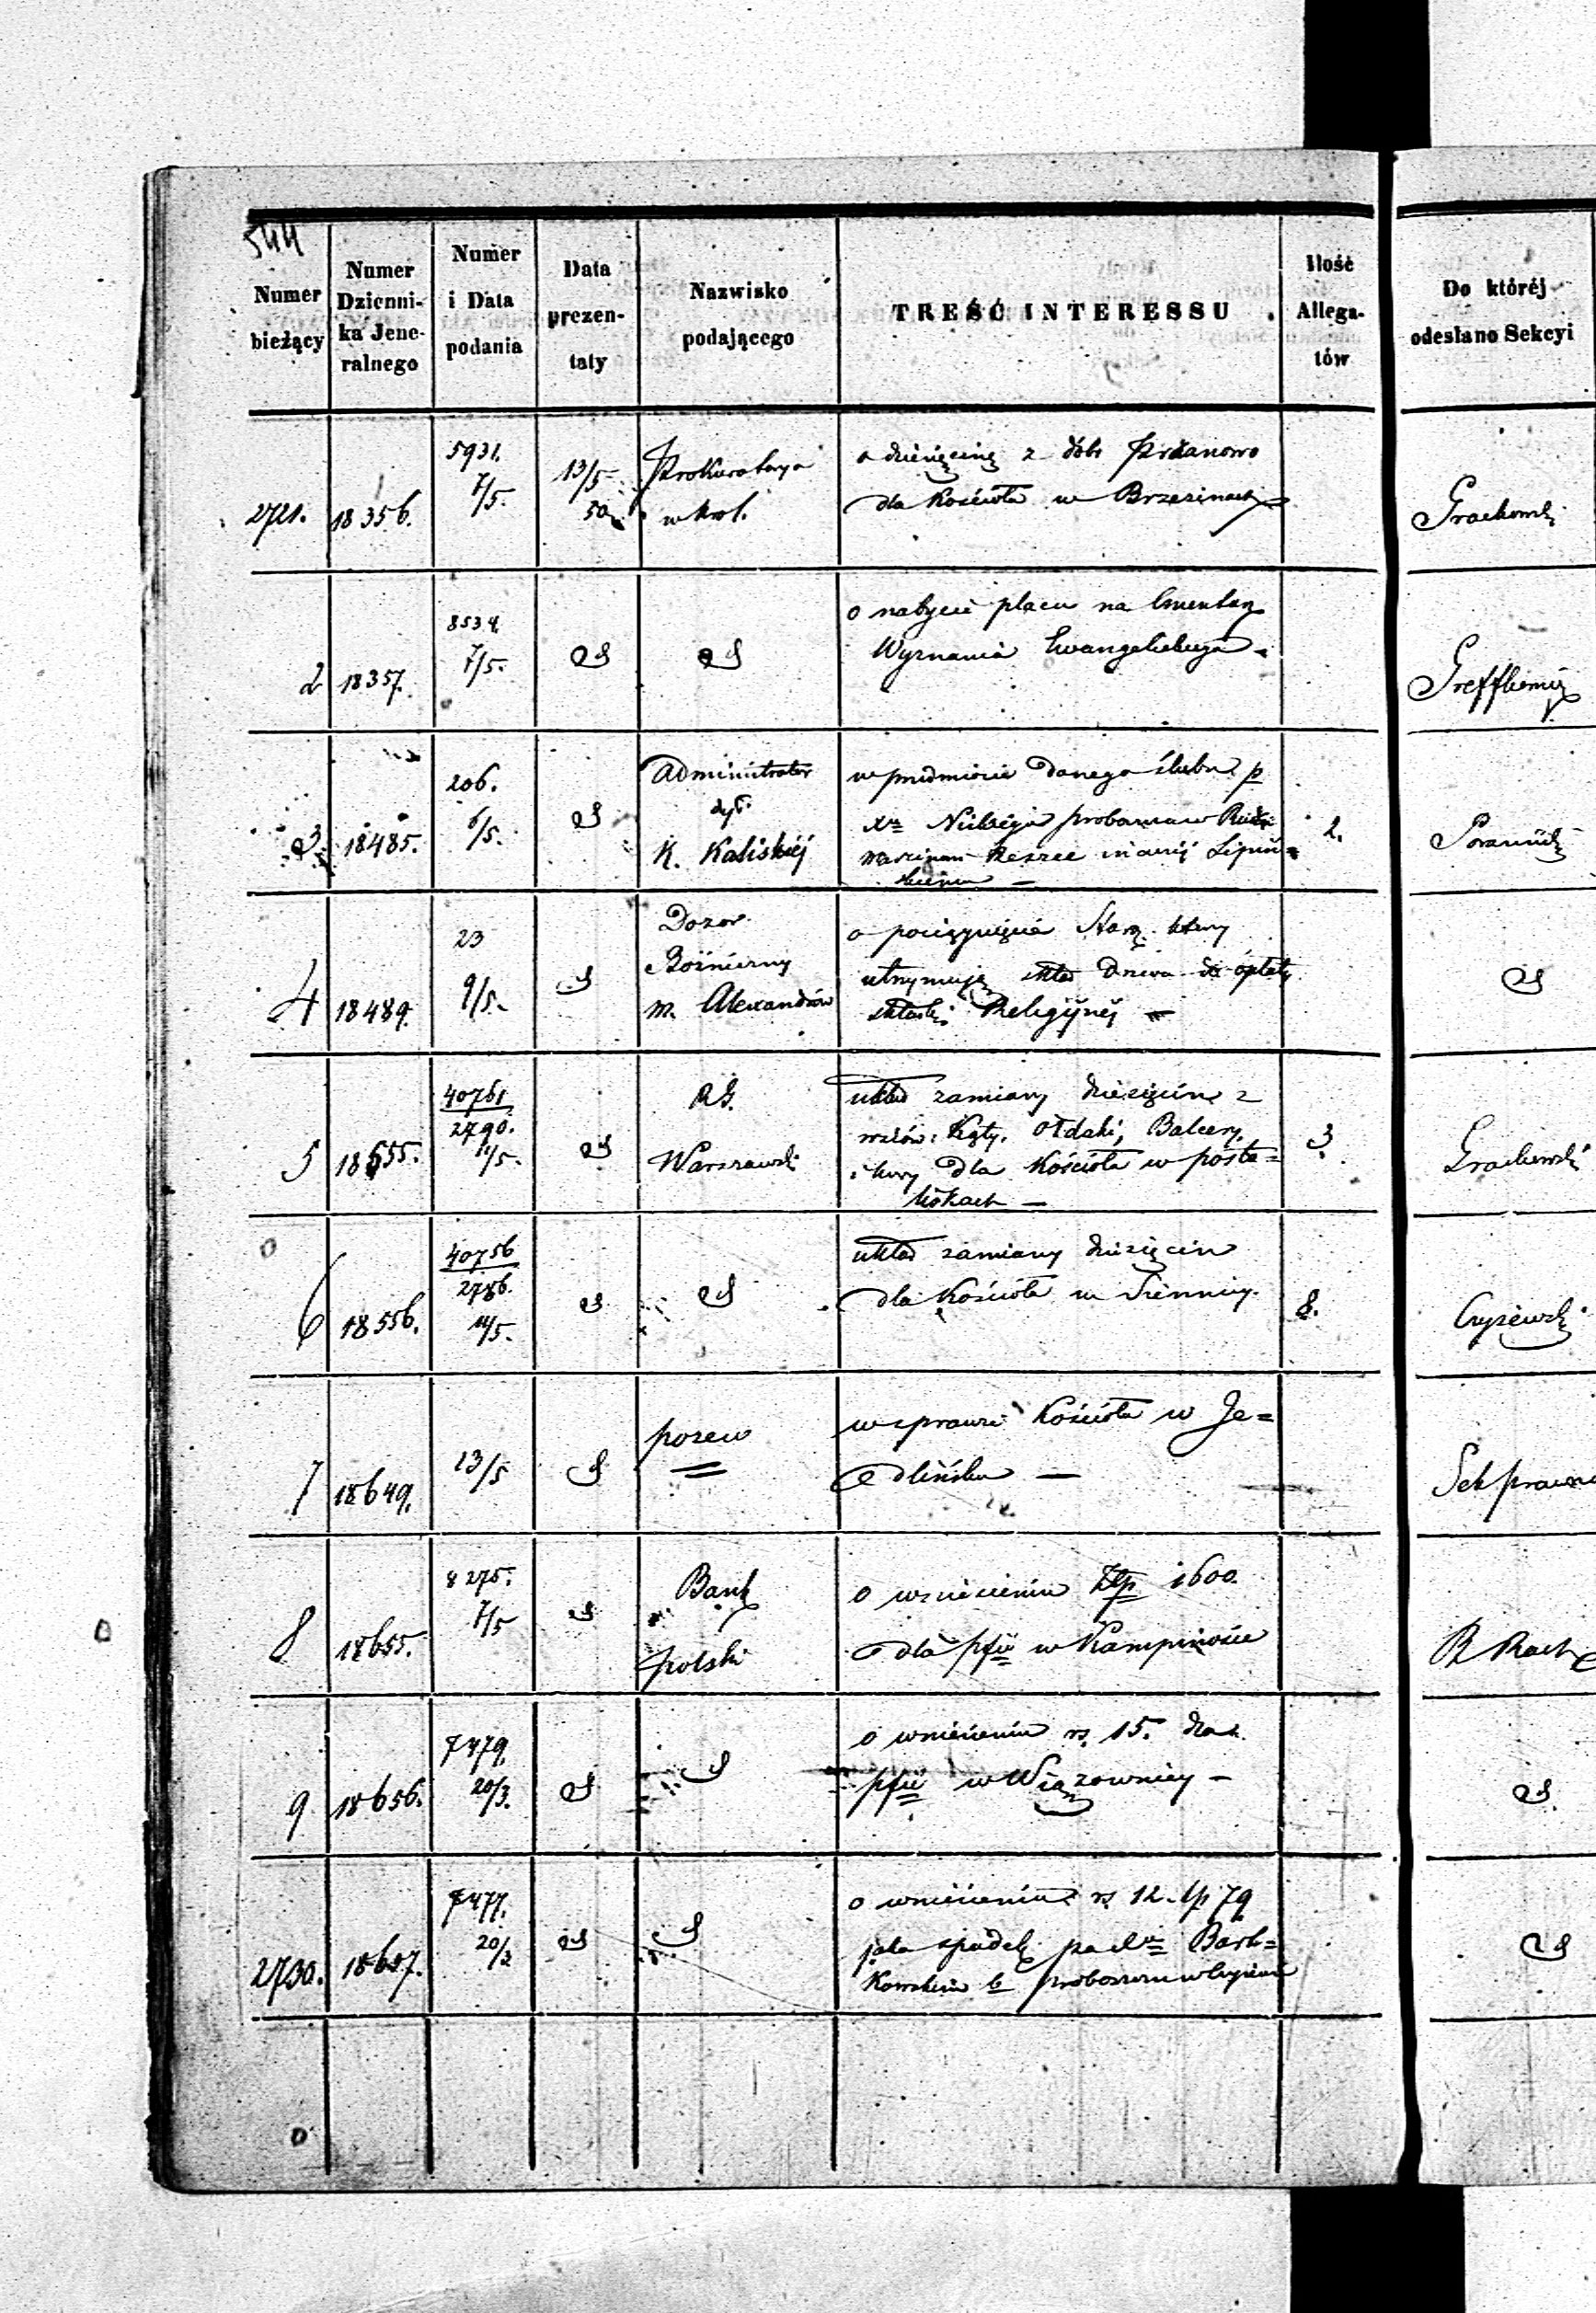 544
Numer
bieżący
Numer
Dzienni-
ka Jene-
ralnego
Numer
i Data
podania
Data
prezen-
taty
Nazwisko
podającego
TREŚĆ INTERESSU
Ilość
Allega-
tów
Do któréj
odesłano Sekcyi
2721.
18356.
5931.
7/5.
13/5
50
Prokuratorya
w Krol.
o dziesięcinę z dóbr
dla Kościoła w Brzezinach
Grachowski
2
18357.
8534.
7/5.
o nabycie placu na Cmentarz
Wyznania Ewangelickiego
3
18485.
206.
6/5.
Administrator
dyć.
K. Kaliskiéj
w przedmiocie danego ślubu p
Xa
2.
4
18489.
23
9/5.
Dozor
Bożniczny
m. Alexandrów
o pociągnięcie Star. który
utrzymuje skład drzewa do opłaty
składki Religijnéj
5
18555.
40761
2790.
11/5.
RG.
Warszawski
układ zamiany dziesięcin z
wsiów: Kąty, Ołdaki, Balcery,
dla Kościoła w Posto=
liskach —
3
Grachowski
6
18556.
40756
2786.
11/5.
układ zamiany dziesięcin
dla Kościoła w Siennicy.
8.
Czyżewski
7
18649.
13/5
pozew
w sprawie Kościoła w Je=
dlińsku —
Sek prawna
8
18655.
8275.
7/5
Bank
polski
o wniesieniu Złp 1600.
dla pfii w Kampinosie
R Rach
9
18656.
7479.
20/3.
o wniesieniu rs. 15. dla
pfii w Wiązownicy —
2730.
18657.
7477.
20/3
o wniesieniu rs 12. kp 79
jako spadek po Xu Bart=
kowskim b proboszczu